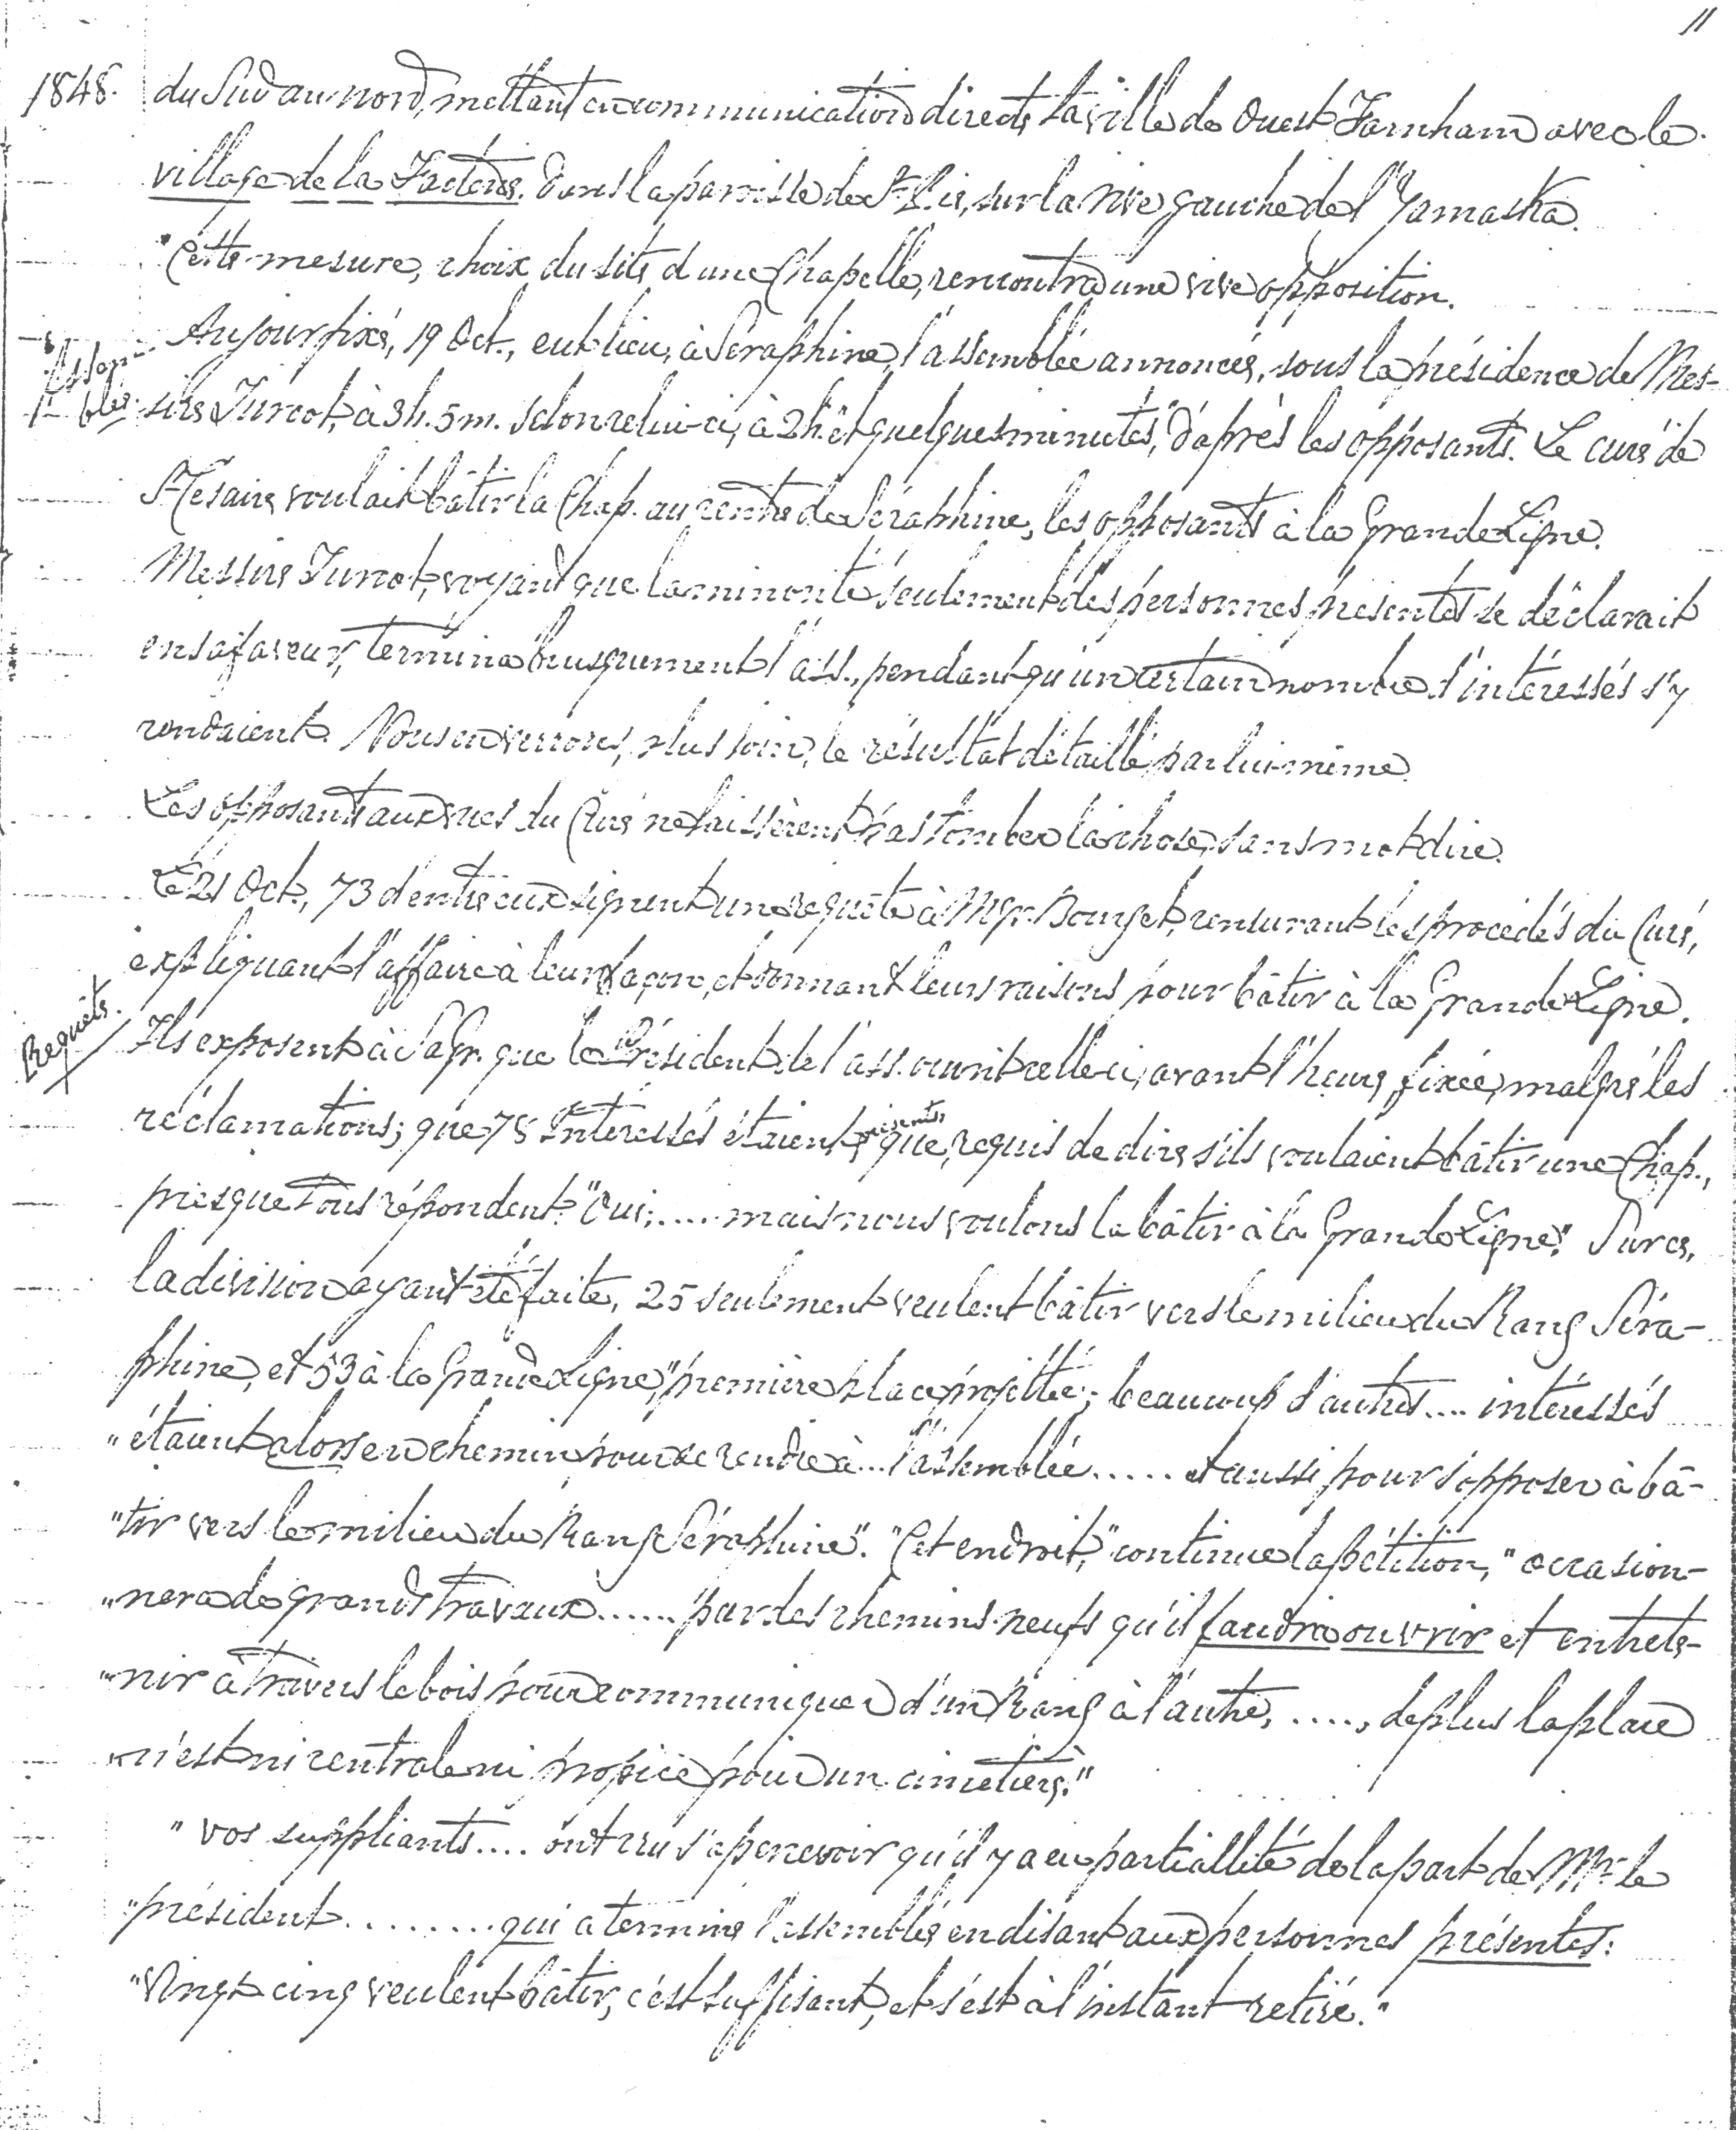 11
1848. du Sud au nord, mettant en communication directe la ville de Ouest Farnham avec le
village de la Factorie. dans la paroisse de St Pie, sur la rive gauche de l'Yamaska.
Cette mesure, choix du site d'une Chapelle, rencontra une vive opposition.
Au jour fixé, 19 Oct., eut lieu, à Séraphine, l'assemblée annoncée, sous la présidence de Mes-
1re Assem-blée
sire Turcot, à 3h. 5m. selon celui-ci, à 2h. "et quelques minutes", d'après les opposants. Le curé de
St Césaire voulait bâtir la Chap. au centre de Séraphine, les opposants à la Grande Ligne.
Messire Turcot, voyant que la minorité seulement des personnes présentes se déclarait
en sa faveur, termina brusquement l'ass., pendant qu'un certain nombre d'intéressés s'y
rendaient. Nous en verrons, plus loin, le résultat détaillé par lui-même.
Les opposants aux vues du Curé ne laissèrent pas tomber la chose, sans mot dire.
Le 21 Oct., 73 d'entre eux signent une requête à Mgr. Bourget, censurant les procédés du Curé,
expliquant l'affaire à leur façon, et donnant leurs raisons pour bâtir à la Grande Ligne.
Requête.
Ils exposent à Sa Gr. que le Président de l'ass. ouvrit celle-ci, avant l'heure fixée, malgré les
réclamations; que 78 Intéressés étaient présents, que, requis de dire s'ils voulaient bâtir une Chap.,
presque tous répondent: "Oui;..... mais nous voulons la bâtir à la Grande Ligne". Sur ce,
la division ayant été faite, 25 seulement veulent bâtir vers le milieu du Rang Séra-
phine, et 53 à la Grande Ligne, "première place projettée; beaucoup d'autres.... intéressés
"étaient alors en chemin pour se rendre à... l'assemblée..... et aussi pour s'opposer à bâ-
"tir vers le milieu du Rang Séraphine". "Cet endroit", continue la pétition, "occasion-
"nera de grands travaux...... par des chemins neufs qu'il faudra ouvrir et entrete-
"nir à travers le bois pour communiquer d'un Rang à l'autre, ...., de plus la place
"n'est ni centrale ni propice pour un cimetière."
"vos suppliants.... ont cru s'apercevoir qu'il y a eu partiallité de la part de Mr. le
"président......... qui a terminé l'assemblée en disant aux personnes présentes:
"Vingt cinq veulent bâtir, c'est suffisant, et s'est à l'instant retiré."